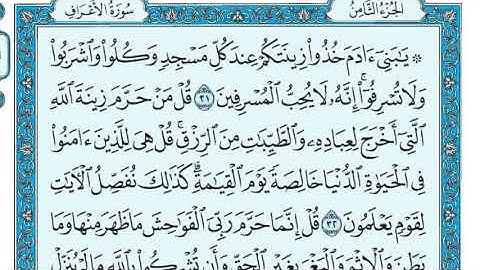 سُورَةُ الأَعْرَافِ
الجُزْءُ الثَّامِنُ
۞ يَٰبَنِيٓ ءَادَمَ خُذُواْ زِينَتَكُمۡ عِندَ كُلِّ مَسۡجِدٖ وَكُلُواْ وَٱشۡرَبُواْ
وَلَا تُسۡرِفُوٓاْۚ إِنَّهُۥ لَا يُحِبُّ ٱلۡمُسۡرِفِينَ ٣١ قُلۡ مَنۡ حَرَّمَ زِينَةَ ٱللَّهِ
ٱلَّتِيٓ أَخۡرَجَ لِعِبَادِهِۦ وَٱلطَّيِّبَٰتِ مِنَ ٱلرِّزۡقِۚ قُلۡ هِيَ لِلَّذِينَ ءَامَنُواْ
فِي ٱلۡحَيَوٰةِ ٱلدُّنۡيَا خَالِصَةٗ يَوۡمَ ٱلۡقِيَٰمَةِۗ كَذَٰلِكَ نُفَصِّلُ ٱلۡأٓيَٰتِ
لِقَوۡمٖ يَعۡلَمُونَ ٣٢ قُلۡ إِنَّمَا حَرَّمَ رَبِّيَ ٱلۡفَوَٰحِشَ مَا ظَهَرَ مِنۡهَا وَمَا
بَطَنَ وَٱلۡإِثۡمَ وَٱلۡبَغۡيَ بِغَيۡرِ ٱلۡحَقِّ وَأَن تُشۡرِكُواْ بِٱللَّهِ مَا لَمۡ يُنَزِّلۡ